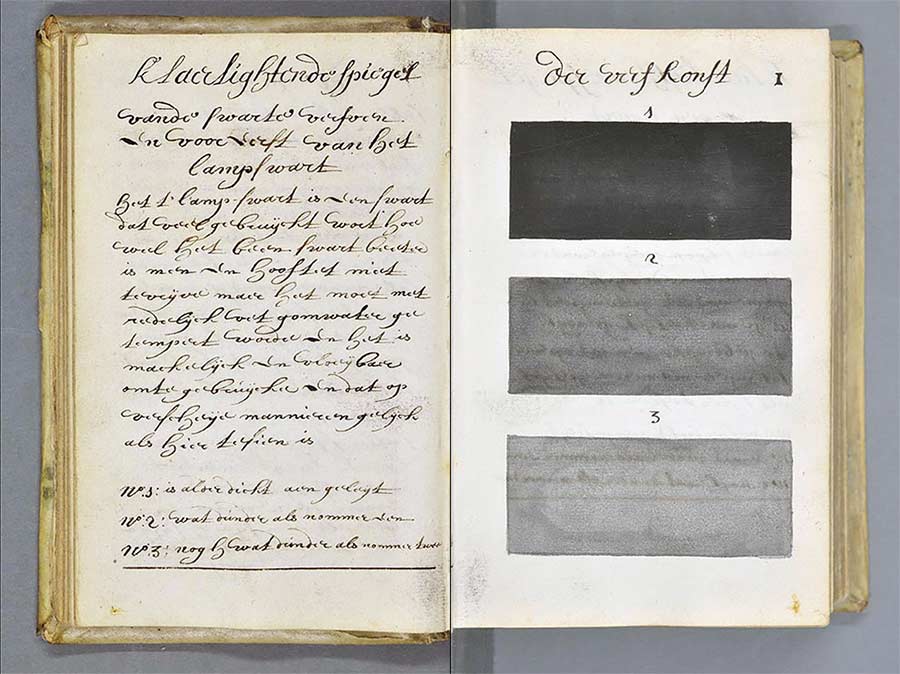 Klaerlightende spiegel
vande swarte verfven
en voor eerst van het
lampswart
Het t'lampswart is een swart
dat veel gebruyckt wort hoe
wel het been swart beeter
is men en hooftet niet
tevrijve maer het moet met
redelijck vet gomwater ge
tempert worde en het is
mackelijck en vloeybaer
omte gebruijcke en dat op
verscheije mannieren gelijck
als hier tesien is
No.1: is alder dicht aen geleyt
No.2: wat dunder als nommer een
No.3: nogh wat dunder als nommer twee
der verf konst 1
1
2
3